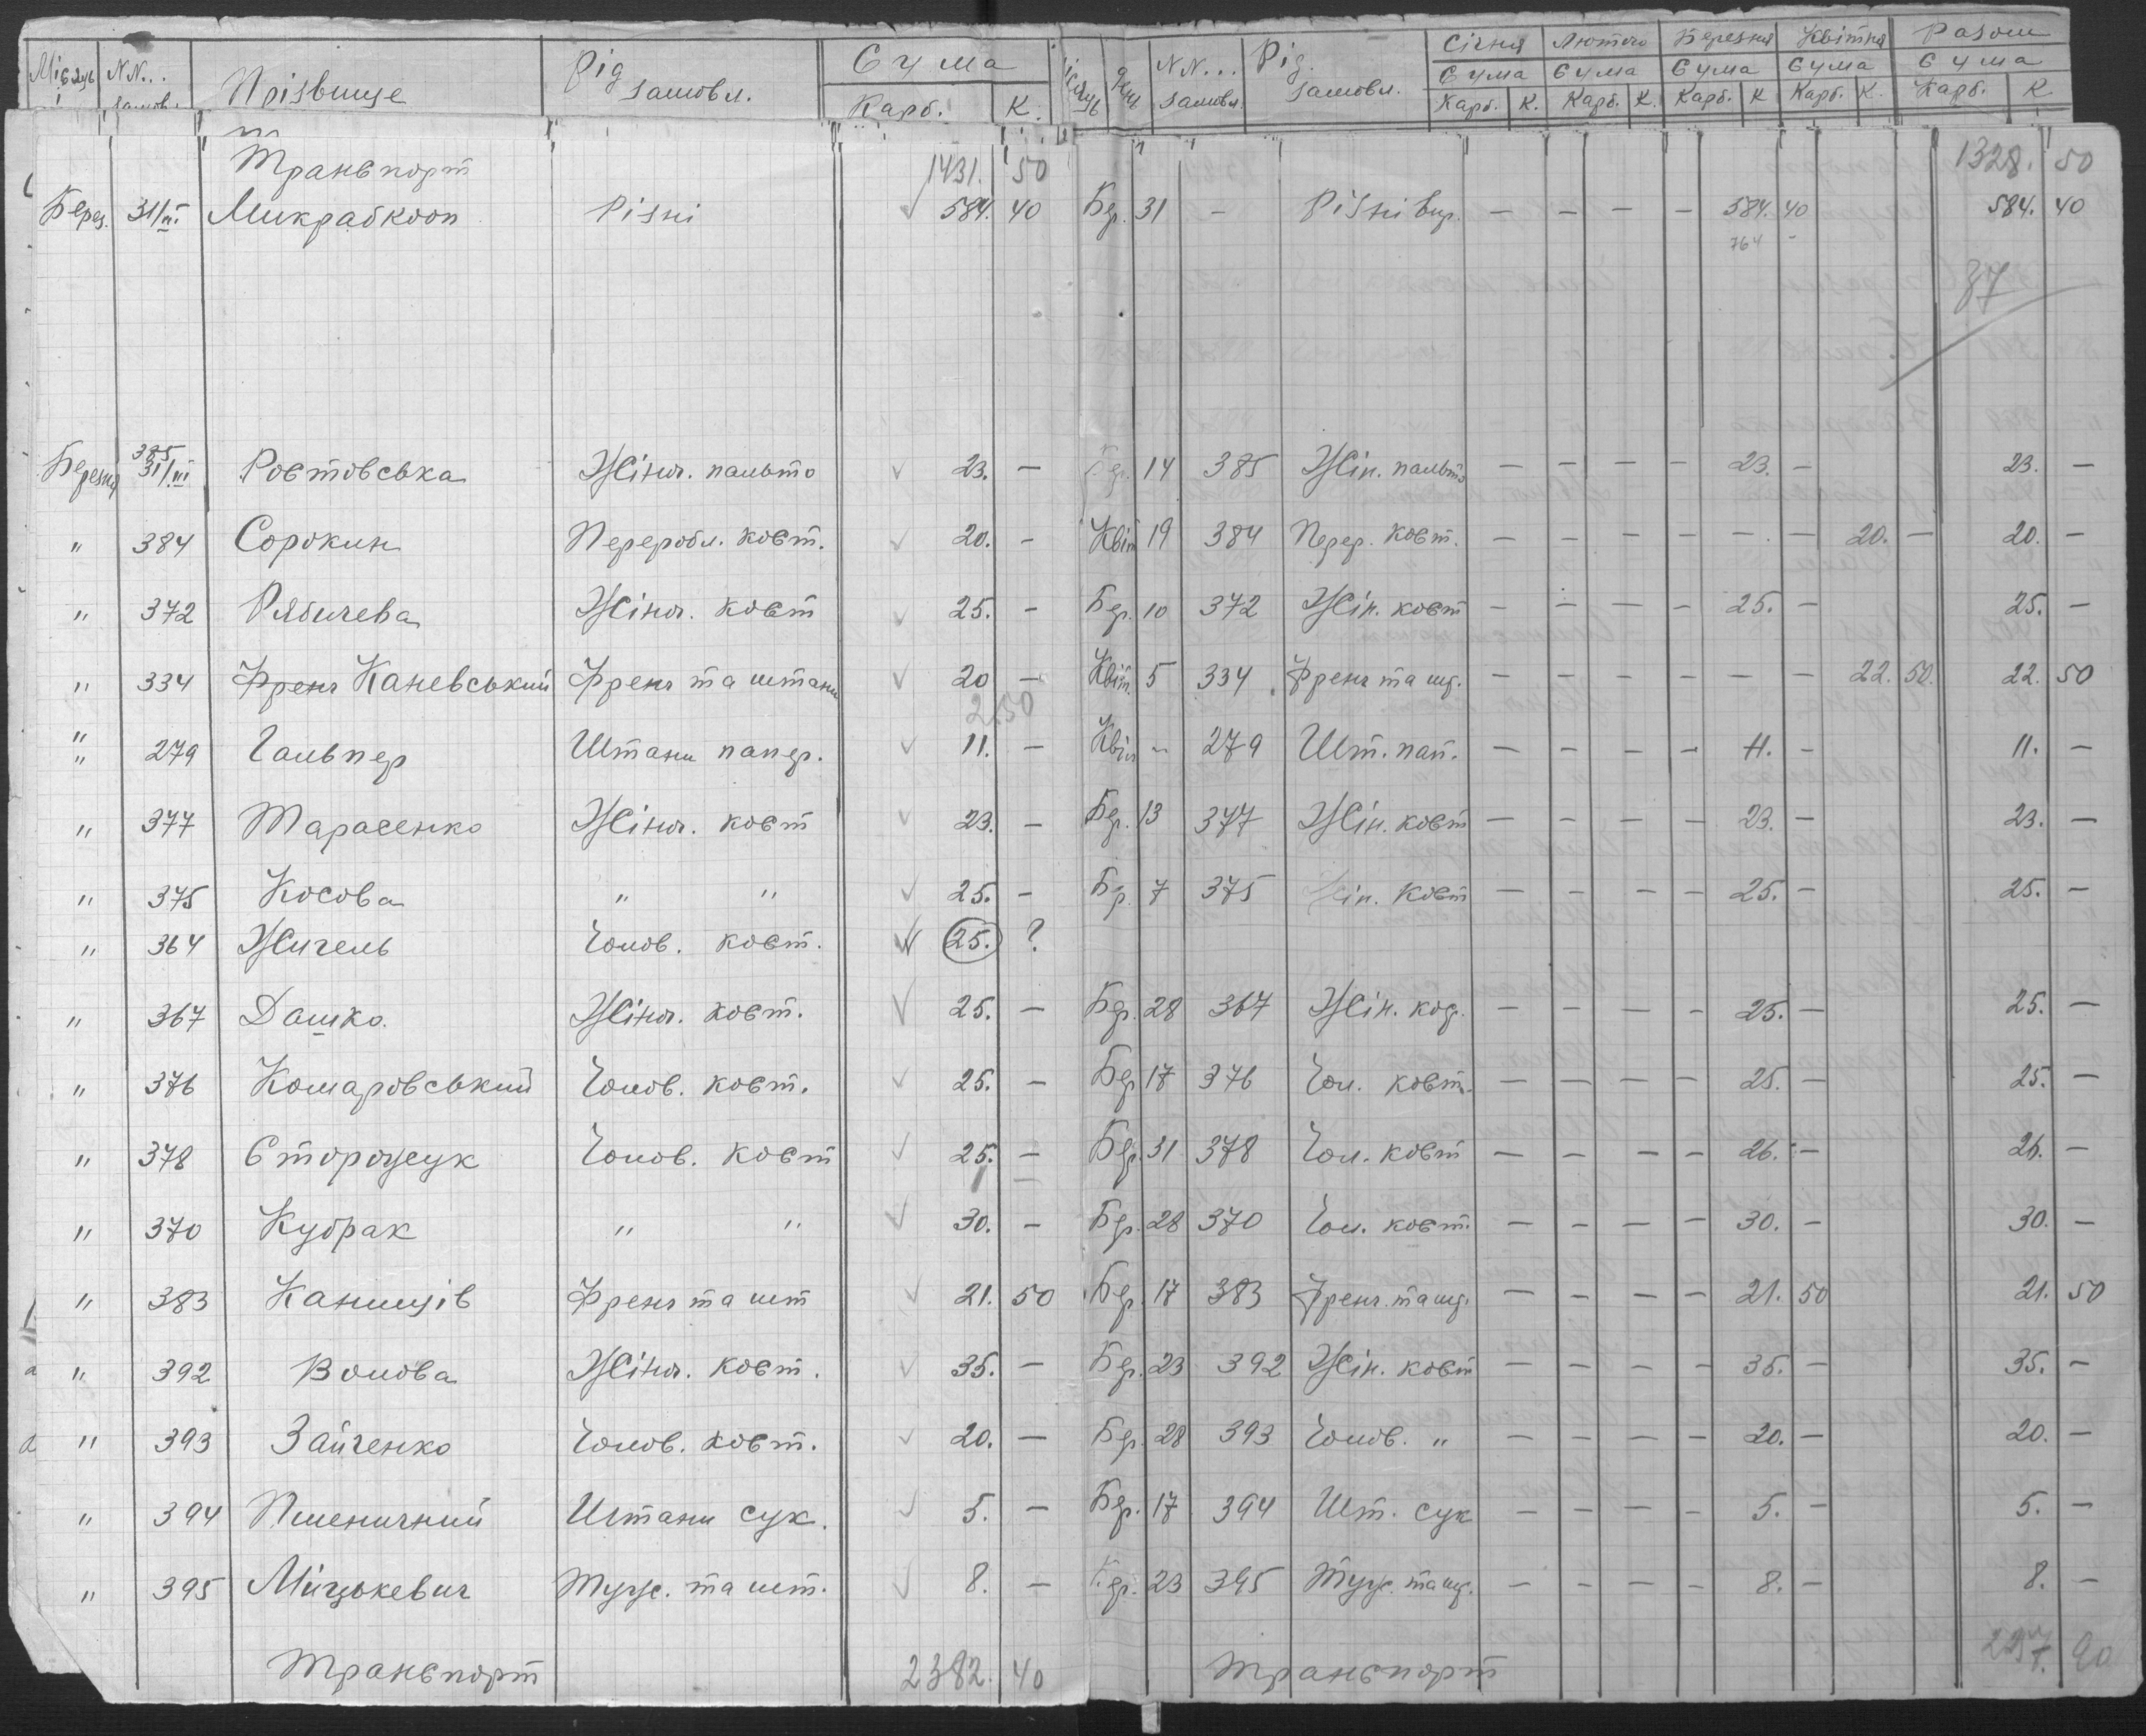 Місяць N N... замов. Прізвище Рід замовл. Сума Карб. К. Місяць Дня N N... замовл. Рід. замовл. Січня Лютого Березня Квітня Разом
Сума Сума Сума Сума Сума
Карб. К. Карб. К. Карб. К Карб. К. Карб. К
Транспорт 1431. 50 1328. 50
Берез. 31/III Микрабкооп Різні 584. 40 Бер. 31 - Різні вир. - - - - 584. 40 584. 40
764 -
87
Березня 385 31/III Ростовська Жіноч. пальто 23. - Бер. 14 385 Жін. пальто - - - - 23. - 23. -
" 384 Сорокин Переробл. кост. 20. - Квіт 19 384 Перер. кост. - - - - - - 20. - 20. -
" 372 Рябичева Жіноч. кост 25. - Бер. 10 372 Жін. кост - - - - 25. - 25. -
" 334 Френч Каневський Френч та штани 20 - Квіт. 5 334 Френч та шт. - - - - - - 22. 50. 22. 50
2.50
" 279 Гальпер Штани папер. 11. - Квіт " 279 Шт. пап. - - - - 11. - 11. -
" 377 Тарасенко Жіноч. кост 23. - Бер. 13 377 Жін. кост - - - - 23. - 23. -
" 375 Косова " " 25. - Бер. 7 375 Жін. кост - - - - 25. - 25. -
" 364 Жигель Чолов. кост. 25. ?
" 367 Дашко. Жіноч. кост. 25. - Бер. 28 367 Жін. кос. - - - - 25. - 25. -
" 376 Комаровський Чолов. кост. 25. - Бер 17 376 Чол. кост. - - - - 25. - 25. -
" 378 Сторожук Чолов. кост 25. - Бер. 31 378 Чол. кост - - - - 26. - 26. -
" 370 Кубрак " " 30. - Бер. 28 370 Чол. кост. - - - - 30. - 30. -
" 383 Канищів Френч та шт 21. 50 Бер. 17 383 Френч. та шт. - - - - 21. 50 21. 50
" 392 Волова Жіноч. кост. 35. - Бер. 23 392 Жін. кост - - - - 35. - 35. -
" 393 Зайченко Чолов. кост. 20. - Бер. 28 393 Чолов. " - - - - 20. - 20. -
" 394 Пшеничний Штани сук. 5. - Бер. 17 394 Шт. сук - - - - 5. - 5. -
" 395 Міцькевич Туж. та шт. 8. - Бер. 23 395 Туж. та шт. - - - - 8. - 8. -
Транспорт 2382. 40 Транспорт 90